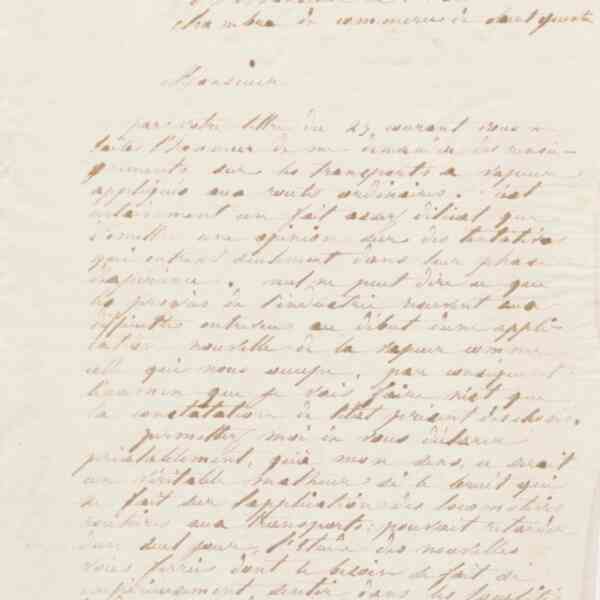 chambre de commerce de
Monsieur
par votre lettre du 27, courant vous me
faites l'honneur de me demander des rensei-
gnements sur les transports a vapeur
appliqués aux routes ordinaires. C'est
certainement un fait assez délicat que
d'émettre une opinion sur des tentatives
qui entrent seulement dans leur phase
d'expérience. nul ne peut dire ce que
les progrès de l'industrie
difficultés au début d'une appli-
cation nouvelle de la vapeur comme
celle qui nous occupe, par conséquent
l'examen que je vais faire n'est que
la constatation de l'état présent des choses.
permettez moi de vous déclarer
préalablement, qu'à mon sens, ce serait
un véritable malheur si le bruit qui
se fait sur l'application des locomotives
routières aux transports, pouvait retarder
d'un seul jour, l'étude des nouvelles
voies ferrées dont le besoin se fait si
impérieusement sentir dans les